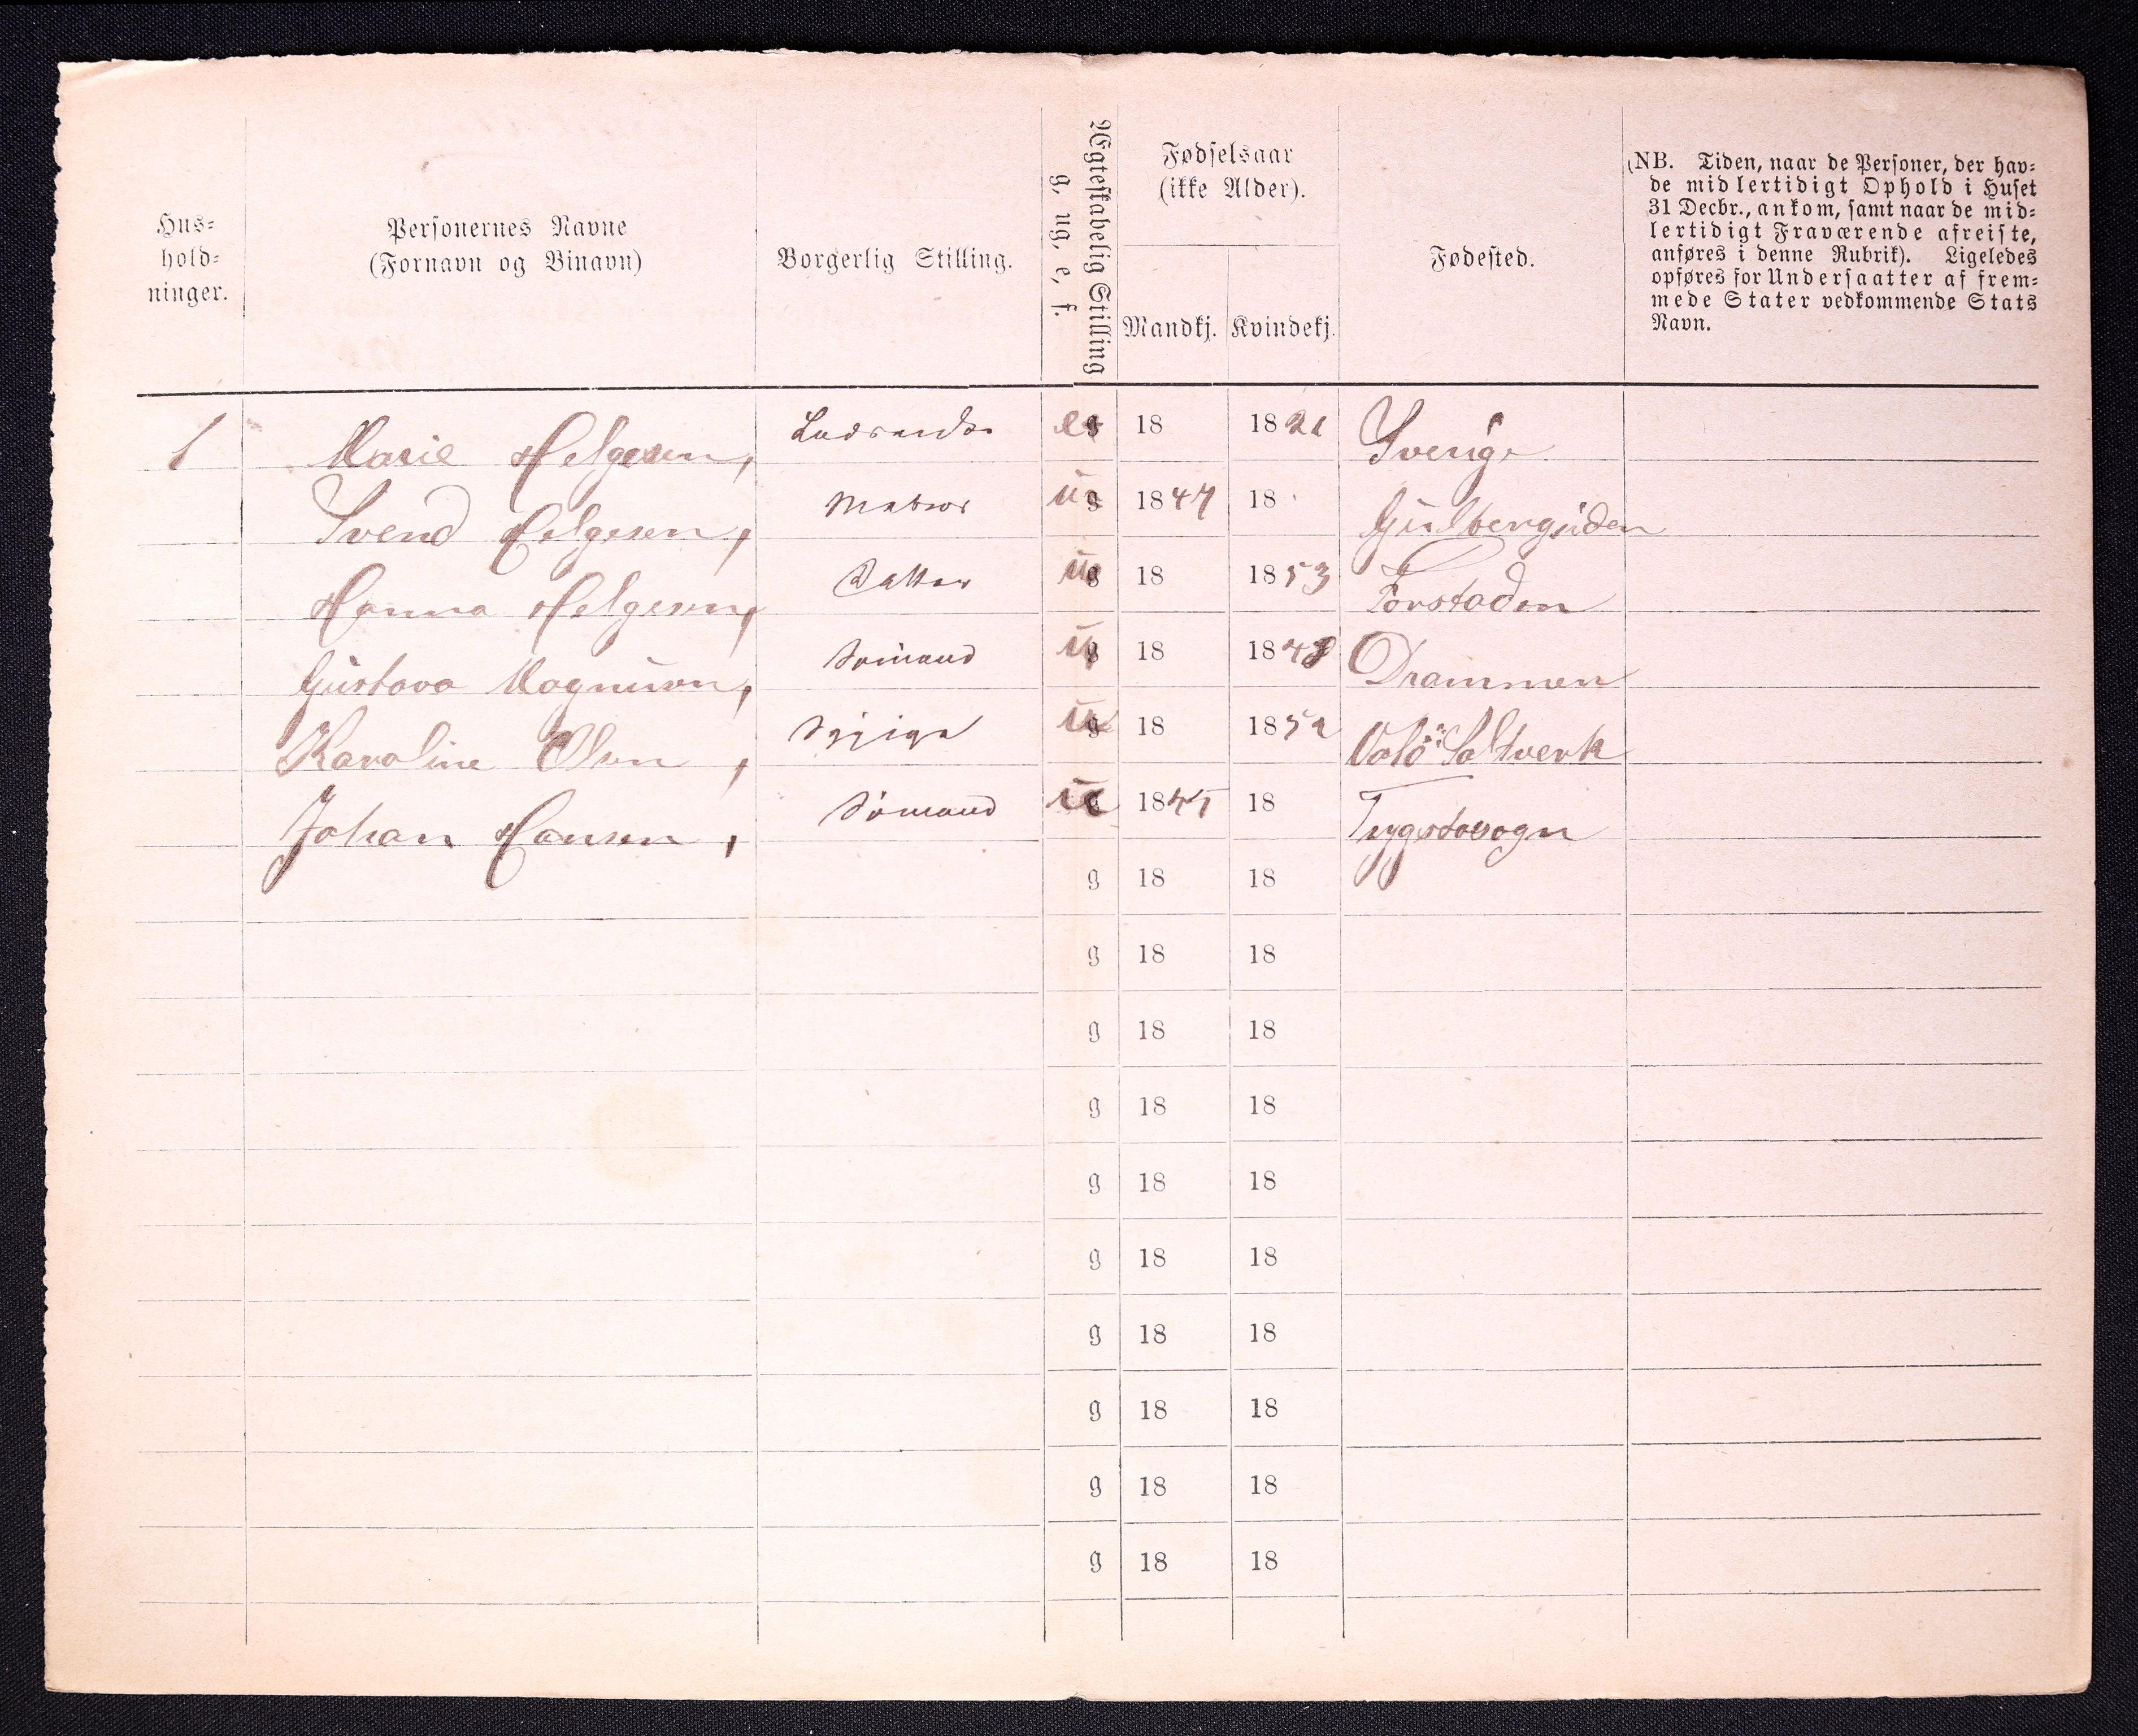 Hus=
hold=
ninger.
Personernes Navne
(Fornavn og Binavn)
Borgerlig Stilling.
Ægteskabelig Stilling
g, ug, e, f.
Fødselsaar
(ikke Alder).
Mandkj. Kvindekj.
Fødested.
(NB. Tiden, naar de Personer, der hav=
de midlertidigt Ophold i Huset
31 Decbr., ankom, samt naar de mid=
lertidigt Fraværende afreiste,
anføres i denne Rubrik). Ligeledes
opføres for Undersaatter af frem=
mede Stater vedkommende Stats
Navn.
1 Marie Helgesen, e 18 1821 Sverige
Svend Helgesen, Matros ug 1847 18 Gulbergsiden
Hanna Helgesen, Datter ug 18 1853 Forstaden
Gustava Magnusen, Sømand ug 18 1848 Drammen
Karoline Olsen, Sypige ug 18 1852 Valø Saltverk
Johan Hansen, Sømand 1845 18 Tryggstadsogn
g 18 18
g 18 18
g 18 18
g 18 18
g 18 18
g 18 18
g 18 18
g 18 18
g 18 18
g 18 18